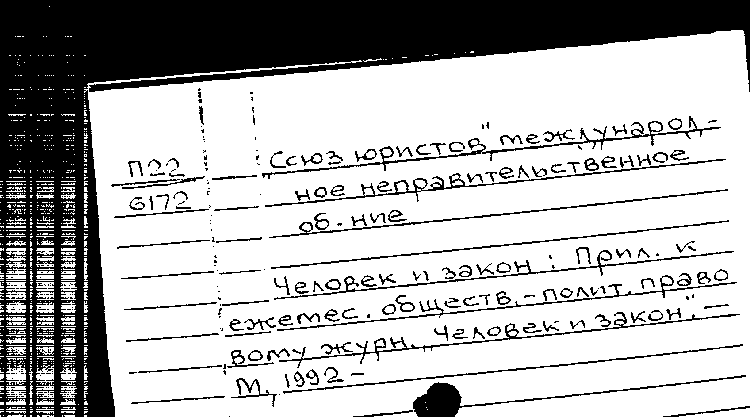 П22
6172
„Союз юристов", международ-
ное неправительственное
об-ние
Человек и закон : Прил. к
ежемес. обществ.-полит. право
вому журн. „Человек и закон". –
М., 1992 –